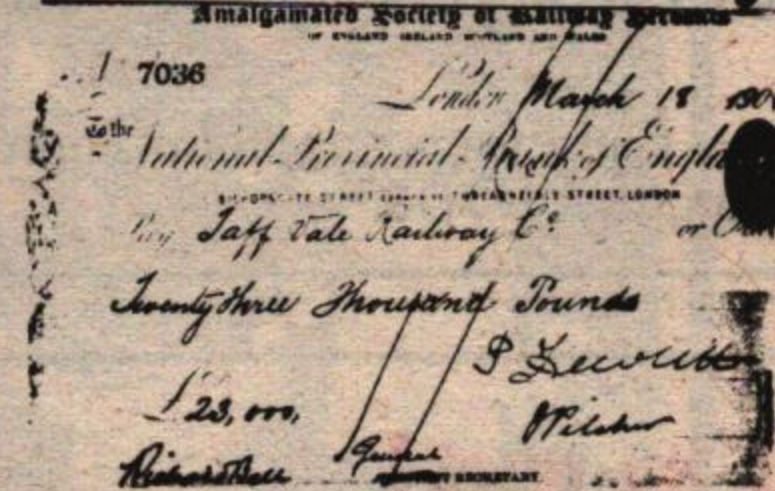 Amalgamated Society of Railway Servants
OF ENGLAND IRELAND SCOTLAND AND WALES
7036
London March 18 190
To the
National Provincial Bank of Engla
BISHOPSGATE STREET CORNER OF THREADNEEDLE STREET, LONDON
Pay Taff Vale Railway Co. or Or
Twenty three Thousand Pounds
£23,000,
Richard Bell General SECRETARY